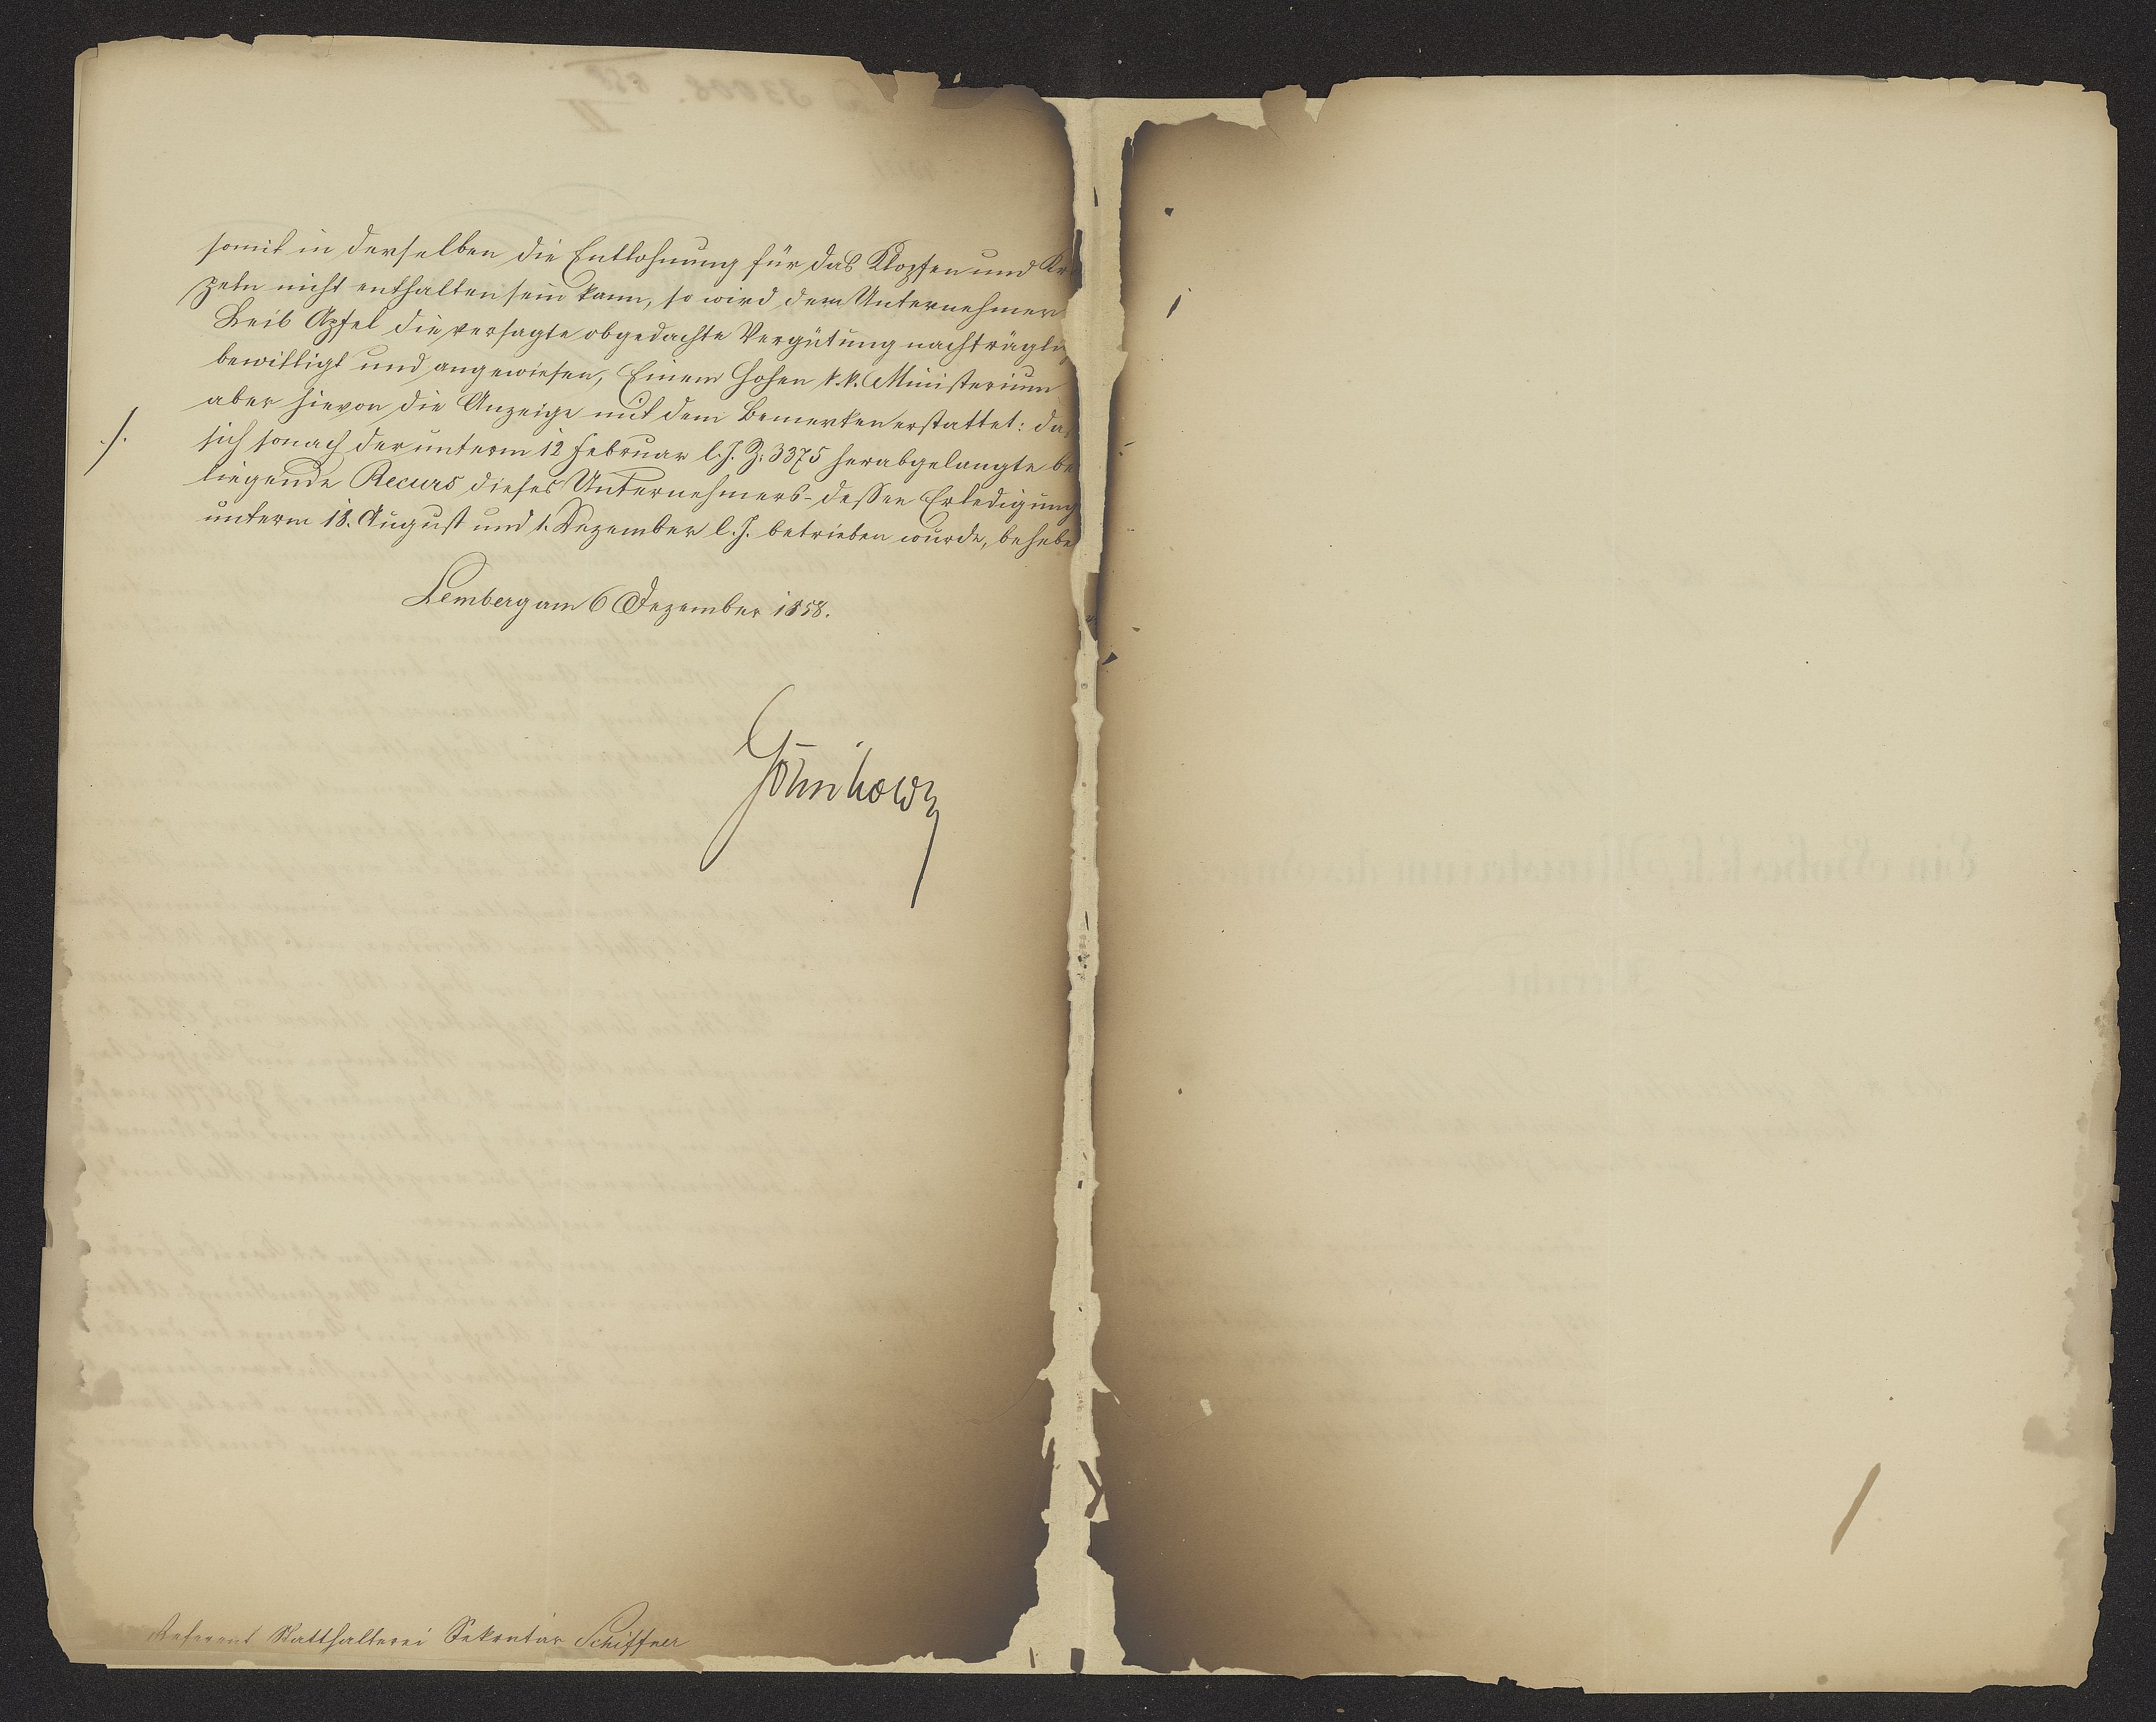 somit in derselben die Entlohnung für das Klopfen und Kr
zeln nicht enthalten sein kann, so wird dem Unternehmer
Leib Apfel die versagte obgedachte Vergütung nachträgli
bewilligt und angewiesen, Einem hohen k.k. Ministerium
aber hievon die Anzeige mit dem Bemerken erstattet: das
./.
sich sonach der unterm 12 Februar l. J. Z: 3375 herabgelangte be
liegende Recurs dieses Unternehmers - dessen Erledigung
unterm 18. August und 1. Dezember l. J. betrieben wurde, behebe
Lemberg am 6 Dezember 1858.
Referent Statthalterei Sekretär Schiffner